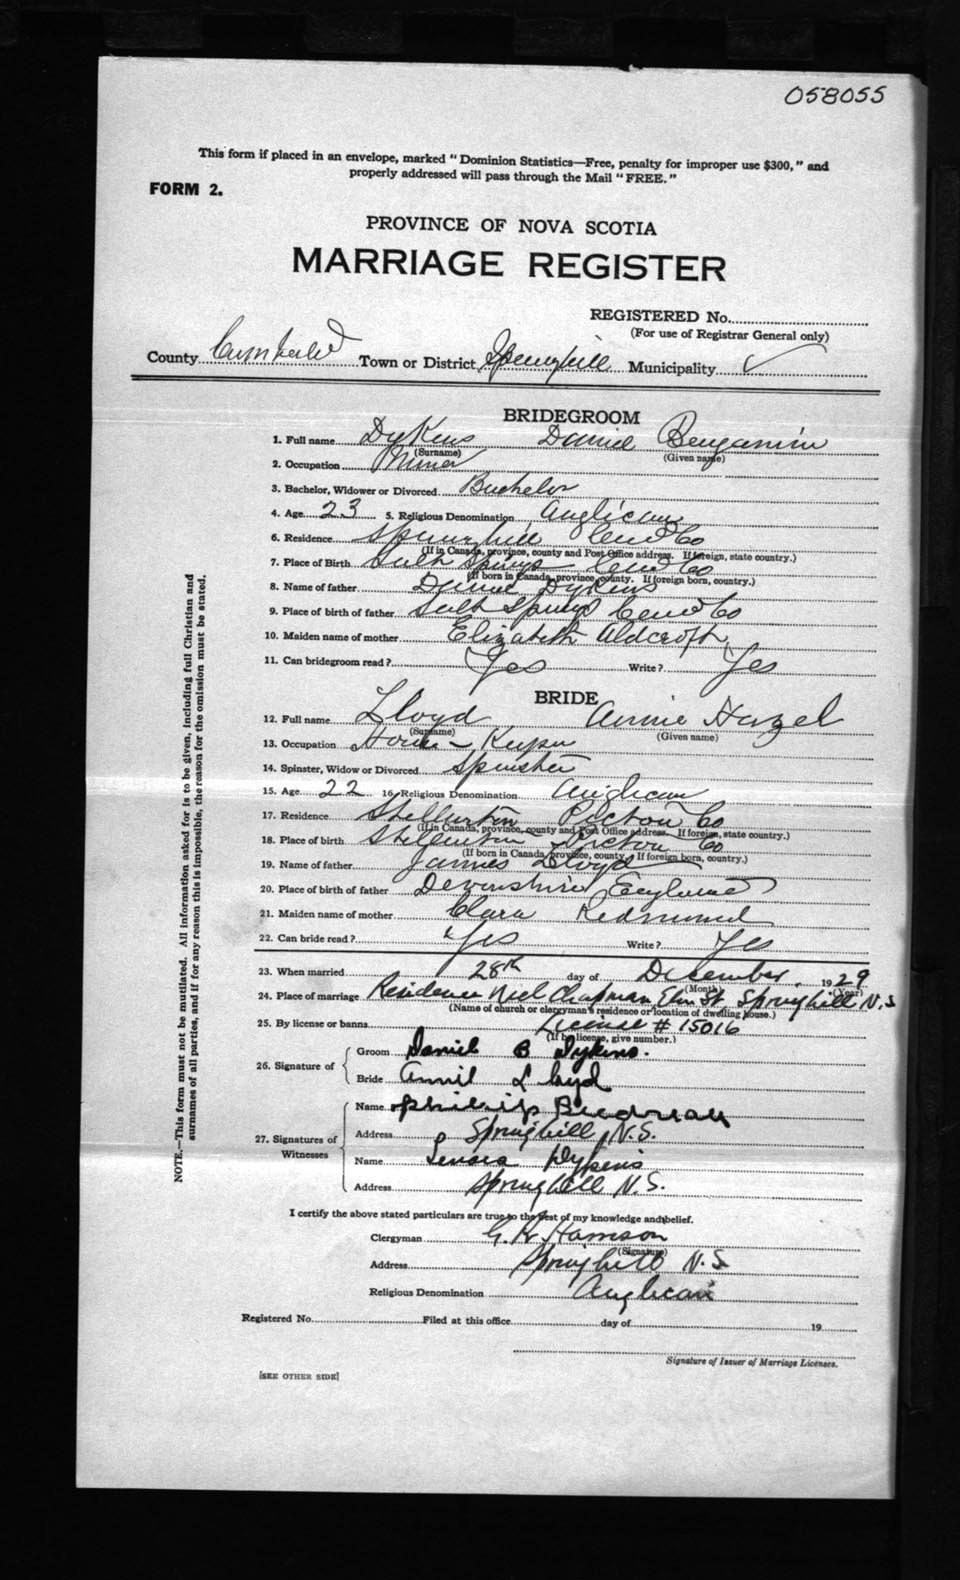 058055
This form if placed in an envelope, marked "Dominion Statistics—Free, penalty for improper use $300," and
properly addressed will pass through the Mail "FREE."
FORM 2.
PROVINCE OF NOVA SCOTIA
MARRIAGE REGISTER
REGISTERED No.
(For use of Registrar General only)
County Cumberland Town or District Springhill Municipality ✓
BRIDEGROOM
1. Full name Dykens Daniel Benjamin
(Surname) (Given name)
2. Occupation Miner
3. Bachelor, Widower or Divorced Bachelor
4. Age 23 5. Religious Denomination Anglican
6. Residence Springhill Cumb Co
(If in Canada, province, county and Post Office address. If foreign, state country.)
7. Place of Birth Salt Springs Cumb Co
(If born in Canada, province, county. If foreign born, country.)
8. Name of father Dykens
9. Place of birth of father Salt Springs Cumb Co
10. Maiden name of mother Elizabeth Aldcroft
11. Can bridegroom read? Yes Write? Yes
BRIDE
12. Full name Lloyd Annie Hazel
(Surname) (Given name)
13. Occupation House-Keeper
14. Spinster, Widow or Divorced Spinster
15. Age 22 16. Religious Denomination Anglican
17. Residence Stellarton Pictou Co
(If in Canada, province, county and Post Office address. If foreign, state country.)
18. Place of birth Stellarton Pictou Co
(If born in Canada, province, county. If foreign born, country.)
19. Name of father James Lloyd
20. Place of birth of father Devonshire England
21. Maiden name of mother Clara Redmond
22. Can bride read? Yes Write? Yes
23. When married 28th day of December, 1929
(Month) (Year)
24. Place of marriage Residence Neil Chapman, Elm St, Springhill N.S
(Name of church or clergyman's residence or location of dwelling house.)
25. By license or banns License # 15016
(If by license, give number.)
26. Signature of Groom Daniel B Dykens.
Bride Annie Lloyd
27. Signatures of Witnesses Name Phillip
Address Springhill, N.S.
Name Dykens
Address Springhill N.S.
I certify the above stated particulars are true to the best of my knowledge and belief.
Clergyman G. R. Harrison
(Signature)
Address Springhill N.S
Religious Denomination Anglican
Registered No. Filed at this office day of 19
Signature of Issuer of Marriage Licenses.
[SEE OTHER SIDE]
NOTE.—This form must not be mutilated. All information asked for is to be given, including full Christian and
surnames of all parties, and if for any reason this is impossible, the reason for the omission must be stated.